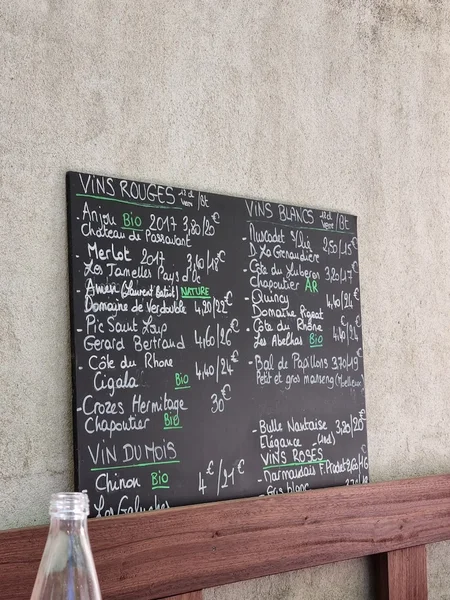 VINS ROUGES 12 cl verre /Bt
- Anjou Bio 2017 3,80/20€
Château de Passavant
- Merlot 2017 3,40/18€
Les Jamelles Pays d'Oc
(Laurent Batiút) NATURE
Domaine de Verdurable 4,20/22€
- Pic Saint Loup
Gerard Bertrand 4,60/26€
- Côte du Rhone 4,40/24€
Cigala Bio
- Crozes Hermitage 30€
Chapoutier Bio
VIN DU MOIS
Chinon Bio 4€/21€
Les Galuches
VINS BLANCS 12 cl verre /Bt
- Muscadet s/lie 2,50/15€
D. La Genaudière
- Côte du Luberon 3,20/17€
Chapoutier AR
- Quincy 4,40/24€
Domaine Pigeat
- Côte du Rhône 4,40/24€
Les Abelhas Bio
- Bal de Papillons 3,70/19€
Petit et gros manseng (Moelleux)
- Bulle Nantaise 3,80/20€
Élégance
VINS ROSÉS
- Marmandais F. Pradet 2,60/16
- Gris blanc